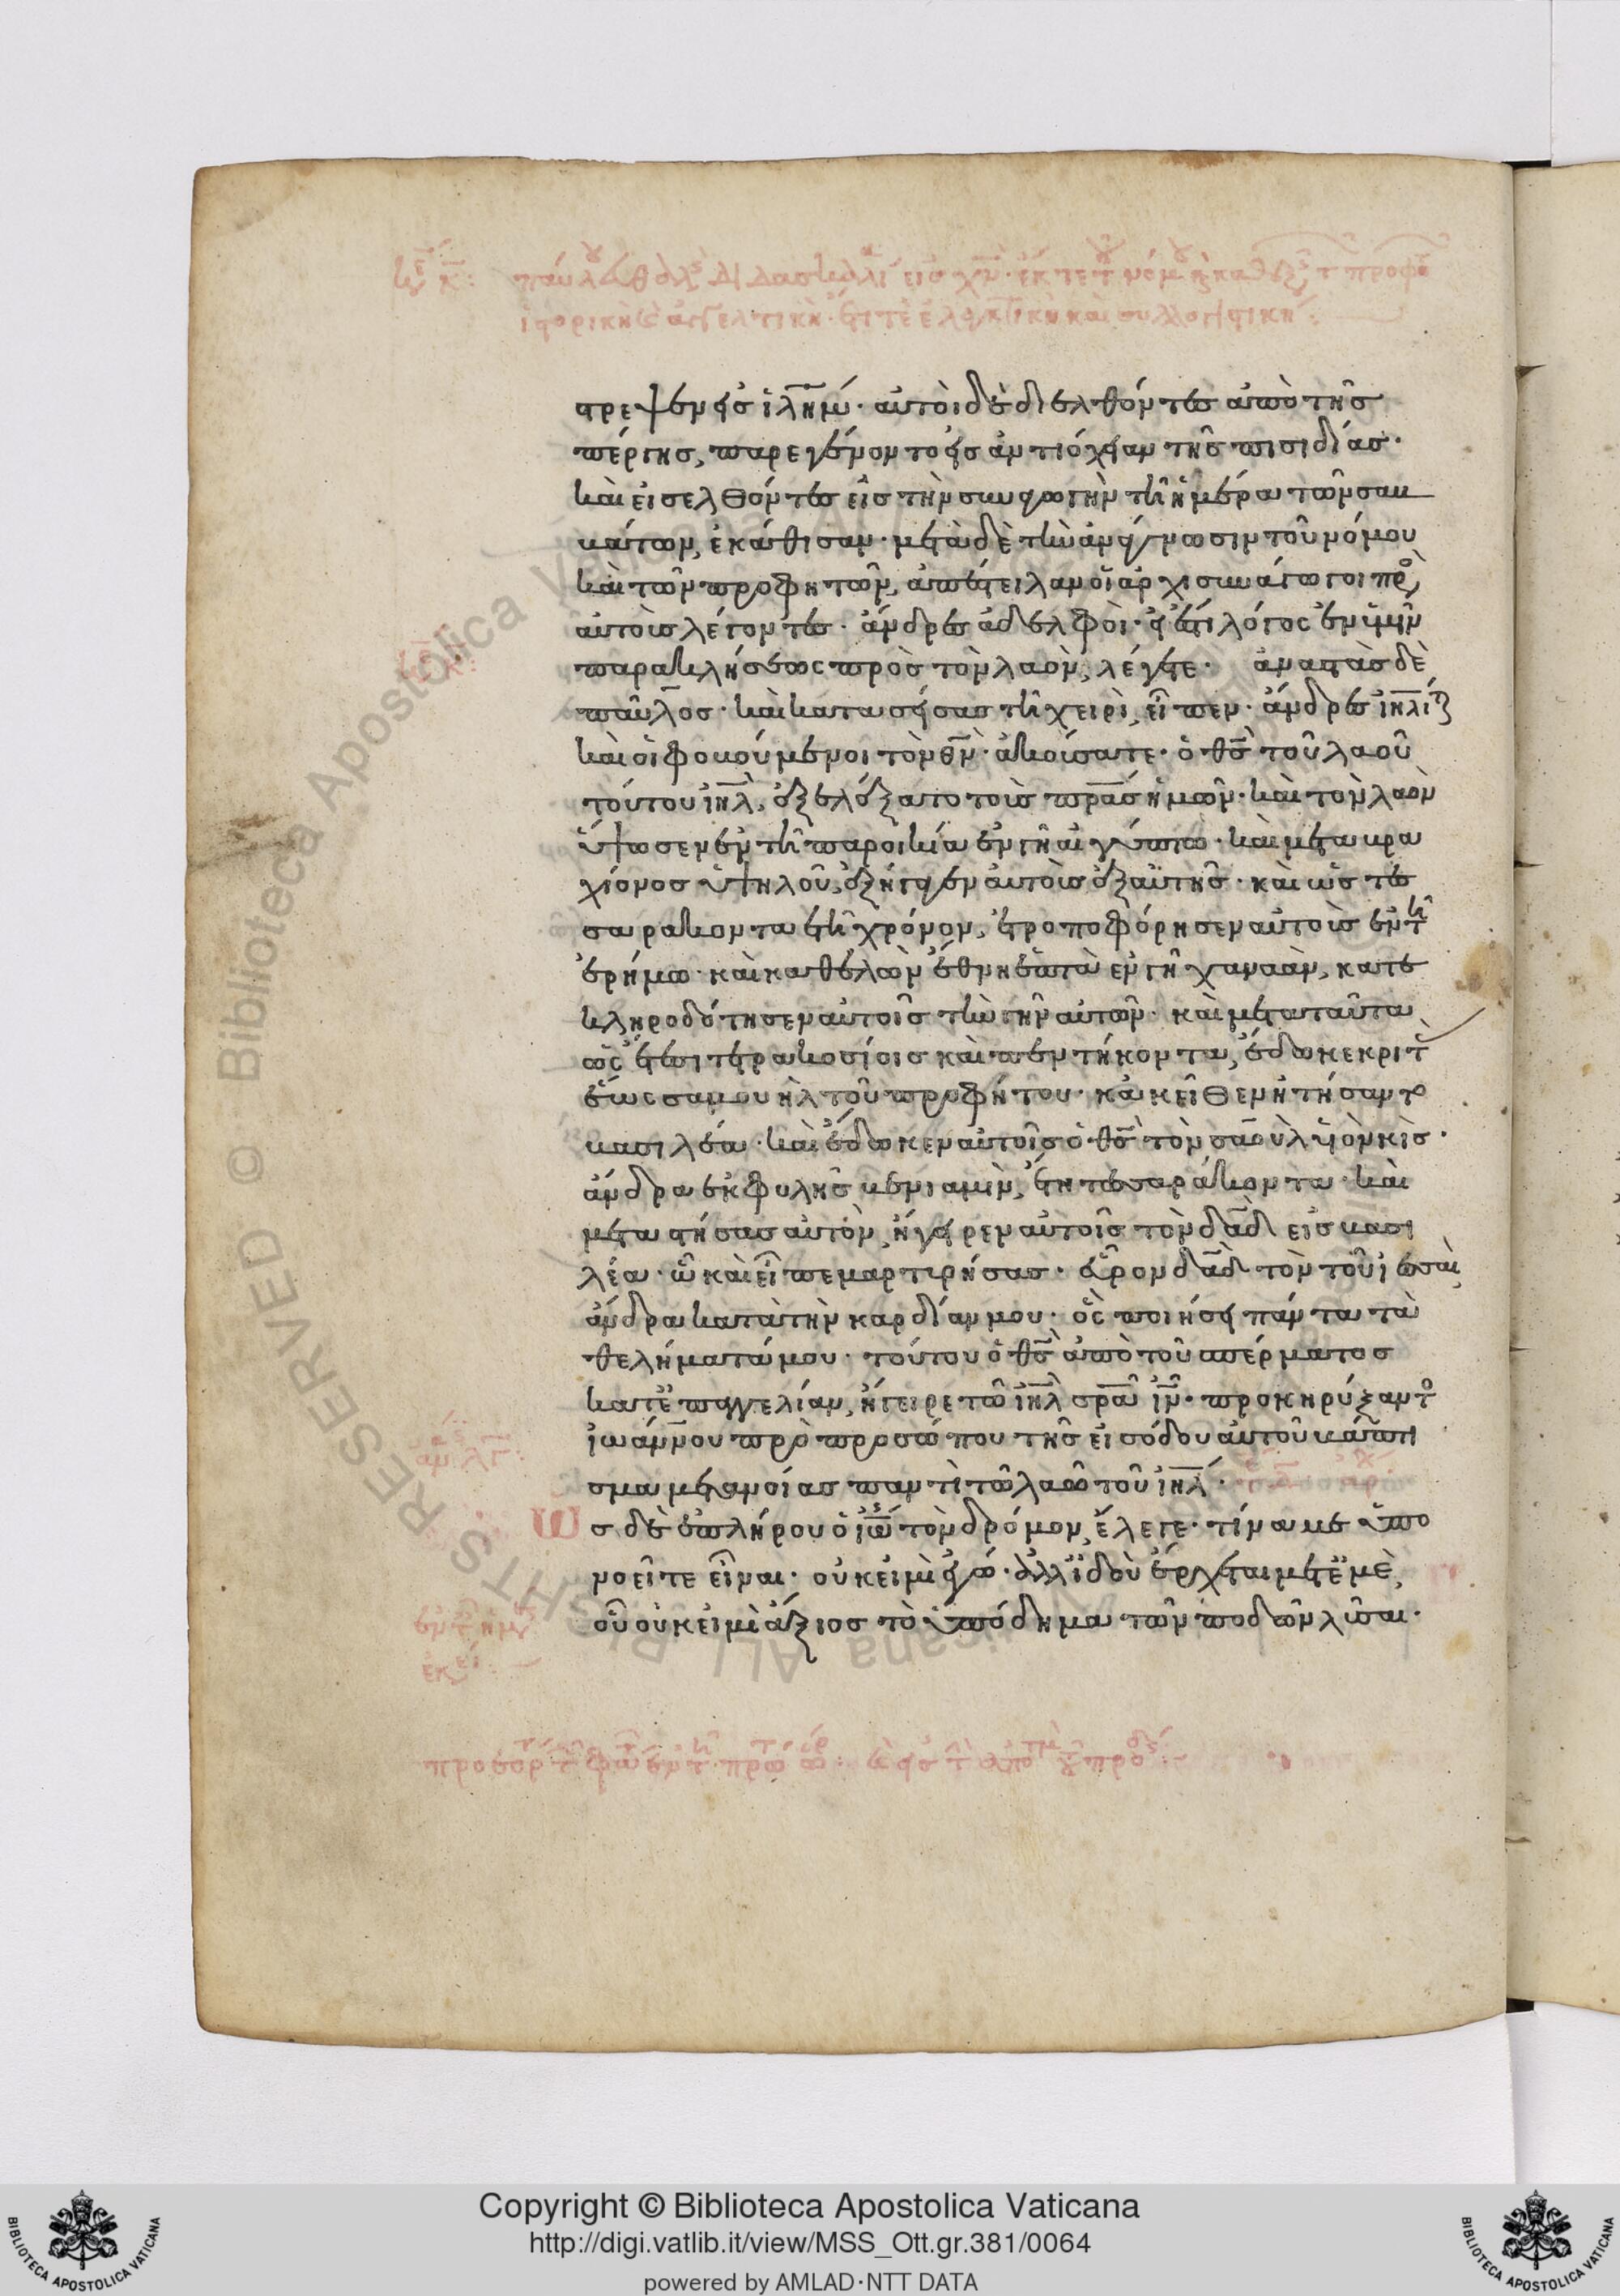 στρεψεν εἰς ἰλημ́· αὐτοὶ δὲ διελθόντες ἀπὸ τῆς
πέργης, παρεγένοντο εἰς ἀντιόχειαν τῆς πισιδίας·
καὶ εἰσελθόντες εἰς τὴν συναγωγὴν τῆ ἡμέρα τῶν σαβ
βάτων, ἐκάθισαν· μετὰ δὲ τὴν ἀνάγνωσιν τοῦ νόμου
καὶ τῶν προφητῶν, ἀπέστειλαν οἱ ἀρχισυνάγωγοι πρὸ
αὐτοὺς λέγοντες· ἄνδρες ἀδελφοὶ· εἰ ἔστι λόγος ἐν ὑμῖν
παρακλήσεως πρὸς τὸν λαὸν, λέγετε· ἀναστὰς δὲ
παῦλος· καὶ κατασείσας τῆ χειρὶ, εἶπεν· ἄνδρες ἰηλῖται
καὶ οἱ φοβούμενοι τὸν θν· ἀκούσατε· ὁ θς τοῦ λαοῦ
τούτου ἰηλ, ἐξελέξατο τοὺς πρας ἡμῶν· καὶ τὸν λαὸν
ὕψωσεν ἐν τῆ παροικία ἐν γῆ αἰγύπτω· καὶ μετα βρα
χίονος ὑψηλοῦ, ἐξήγαγεν αὐτοὺς ἐξ αὐτῆς· καὶ ὡς τεσ
σαρακονταετῆ χρόνον, ἐτροποφόρησεν αὐτοὺς ἐν τῆ
ἐρήμω· καὶ καθελὼν ἔθνη ἑπτὰ ἐν γῆ χαναὰν, κατε
κληροδότησεν αὐτοῖς τὴν γῆν αὐτῶν· καὶ μετα ταῦτα
ὡς ἔτεσι τετρακοσίοις καὶ πεντήκοντα, ἔδωκε κριτ
ἕως σαμουὴλ τοῦ προφήτου· κἀκεῖθεν ἠτήσαντο
βασιλέα· καὶ ἔδωκεν αὐτοῖς ὁ θς τὸν σαοὺλ υἱὸν κὶς·
ἄνδρα ἐκ φυλῆς βενιαμὶν, ἔτη τεσσαράκοντα· καὶ
μεταστήσας αὐτὸν, ἤγειρεν αὐτοῖς τὸν δαδ εἰς βασι
λέα· ὧ καὶ εἶπε μαρτυρήσας· εὗρον δαδ τὸν τοῦ ἰεσσαὶ,
ἄνδρα κατὰ τὴν καρδίαν μου· ὃς ποιήσει πάντα τὰ
θελήματά μου· τούτου ὁ θς ἀπὸ τοῦ σπέρματος
κατ' ἐπαγγελίαν, ἤγειρε τῶ ἰηλ σρα ἰν· προκηρύξαντο
ἰωάννου πρὸ προσώπου τῆς εἰσόδου αὐτοῦ βάπτι
σμα μετανοίας παντὶ τῶ λαῶ τοῦ ἰηλ·
ὡς δὲ ἐπλήρου ὁ ἰω τὸν δρόμον, ἔλεγε· τίνα με ὑπο
νοεῖτε εἶναι· οὐκ εἰμὶ ἐγώ· ἀλλ' ἰδοὺ ἔρχεται μετ' ἐμὲ,
οὗ οὐκ εἰμὶ ἄξιος τὸ ὑπόδημα τῶν ποδῶν λῦσαι·
Copyright © Biblioteca Apostolica Vaticana
http://digi.vatlib.it/view/MSS_Ott.gr.381/0064
powered by AMLAD·NTT DATA
BIBLIOTECA APOSTOLICA VATICANA
BIBLIOTECA APOSTOLICA VATICANA